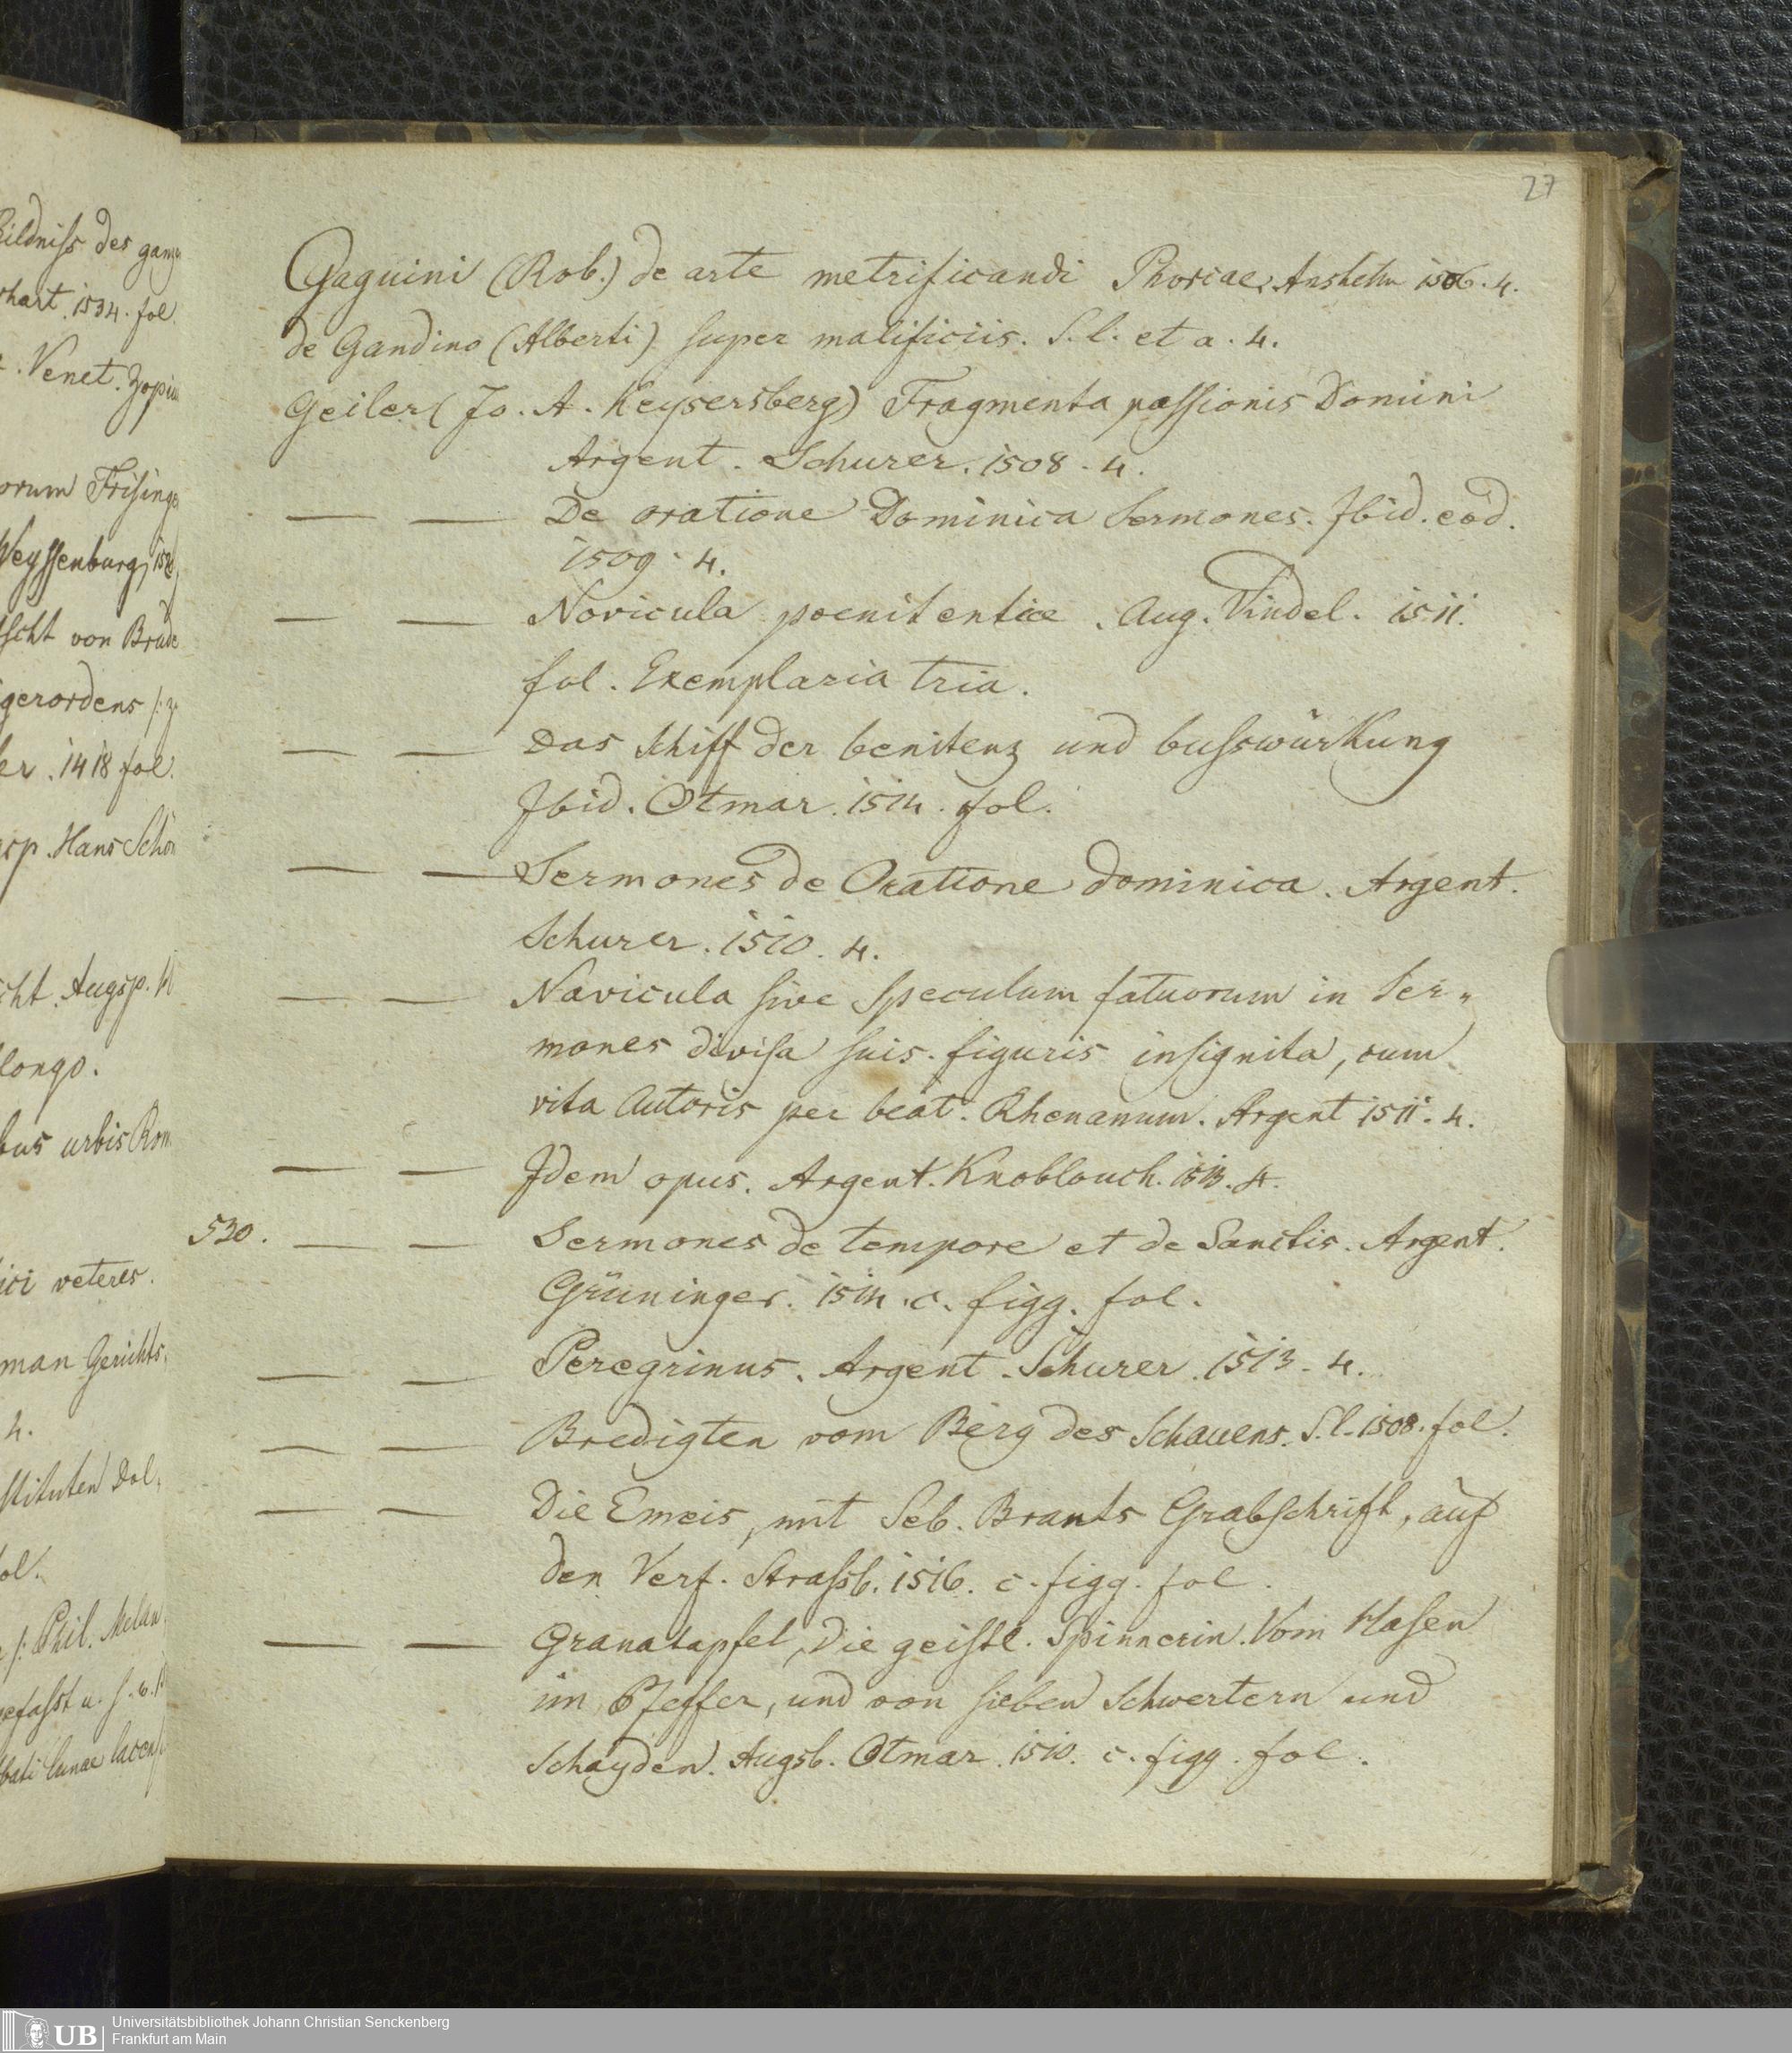 27
Gaguini (Rob.) de arte metrificandi Phorcae, Anshelm 1506. 4.
de Gandino (Alberti) super malificiis. S. l. et a. 4.
Geiler (Jo. A. Keysersberg) Fragmenta passionis Domini
Argent. Schurer. 1508. 4.
— — De oratione Dominica Sermones. Ibid. eod.
1509. 4.
— — Novicula poenitentice. Aug. Vindel. 1511.
fol. Exemplaria tria.
— — Das Schiff der benitenz und busswürkung
Ibid. Otmar. 1514. fol.
— — Sermones de Oratione dominica. Argent.
Schurer. 1510. 4.
— — Navicula sive Speculum fatuorum in Ser„
mones divisa suis. figuris insignita, cum
vita Autoris per beat. Rhenanum. Argent 1511. 4.
— — Idem opus. Argent. Knoblouch. 1513. 4.
530. — — Sermones de tempore et de Sanctis. Argent.
Grüninger. 1514. c. figg. fol.
— — Peregrinus. Argent. Schurer. 1513. 4.
— — Bredigten vom Berg des Schauens. S. l. 1508. fol.
— — Die Emeis, mit Seb. Brants Grabschrift, auf
den Verf. Strassb. 1516. c. figg. fol.
— — Granatapfel, Die geistl. Spinnerin. Vom Hasen
im Pfeffer, und von sieben Schwertern und
Schayden. Augsb. Otmar. 1510. c. figg. fol.
Bildniss des
1534. fol.
Venet.
orum
Weyssenburg,
von
gerordens
1418 fol.
Hans
Augsp.
longo.
urbis
veteres.
man Gerichts
4.
Phil.
lunae
UB
Universitätsbibliothek Johann Christian Senckenberg
Frankfurt am Main